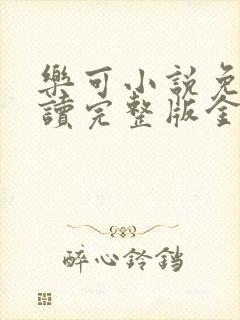 樂可小說免
讀完整版全
醉心鈴鐺